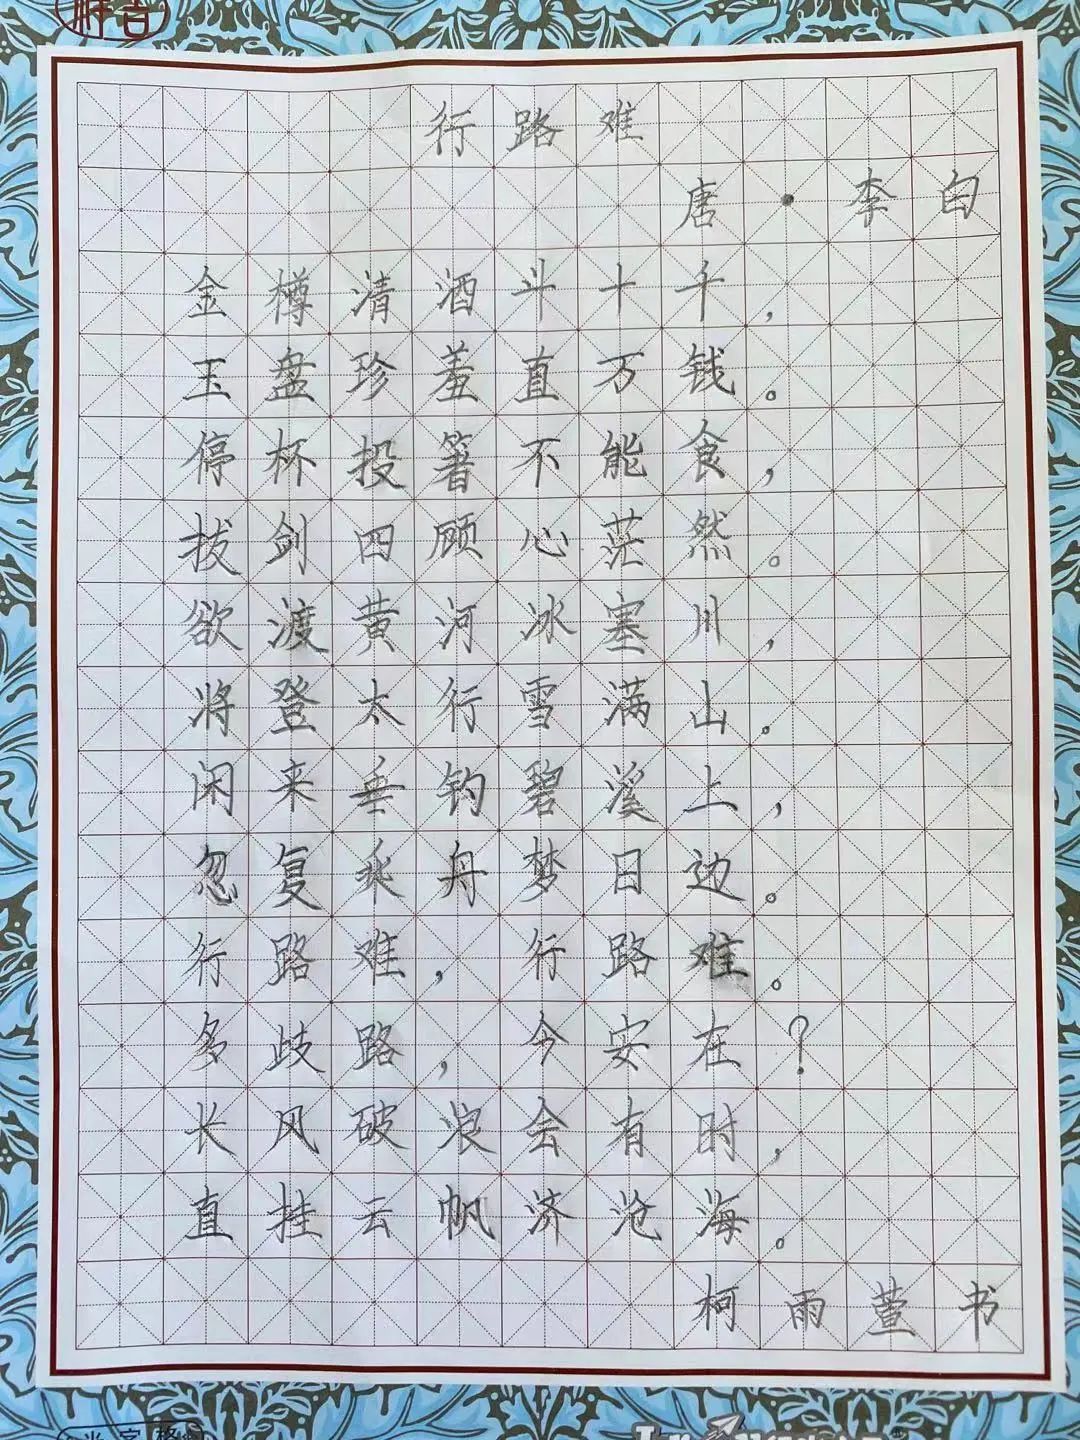 行路难
唐·李白
金樽清酒斗十千,
玉盘珍羞直万钱。
停杯投箸不能食,
拔剑四顾心茫然。
欲渡黄河冰塞川,
将登太行雪满山。
闲来垂钓碧溪上,
忽复乘舟梦日边。
行路难,行路难。
多歧路,今安在?
长风破浪会有时,
直挂云帆济沧海。
柯雨萱书